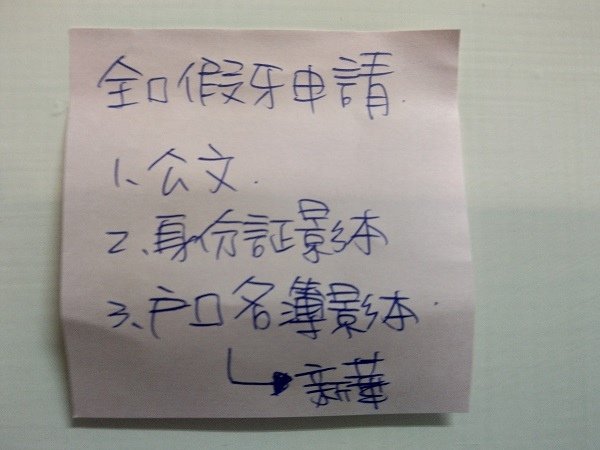 全口假牙申請.
1、公文.
2、身份証影本
3、戶口名簿影本.
新華